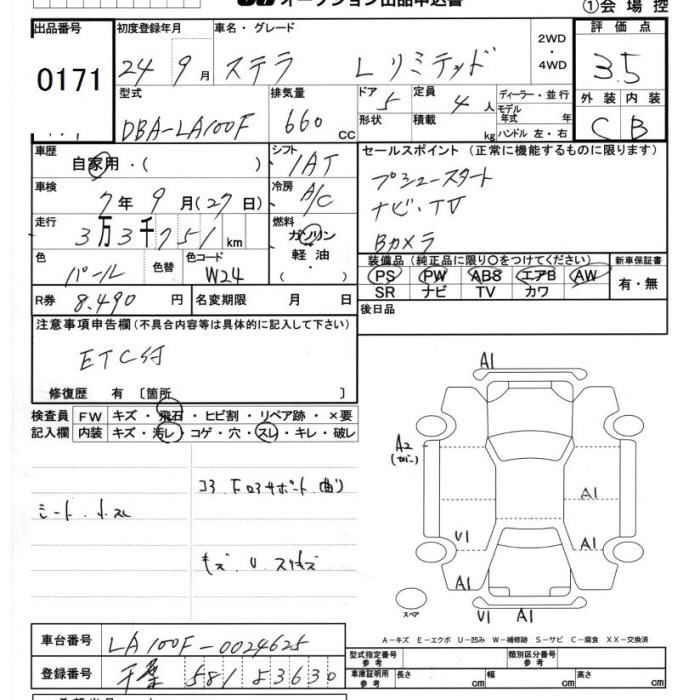 オークション出品申込書
①会場控
出品番号 初度登録年月 車名・グレード 2WD・4WD 評価点
0171 24 9月 ステラ Lリミテッド 3.5
型式 排気量 ドア 定員 ディーラー・並行 外装 内装
DBA-LA100F 660 CC 5 4人 モデル年式 年 C B
形状 積載 kg ハンドル 左・右
車歴 シフト セールスポイント (正常に機能するものに限ります)
自家用・( ) IAT プシュースタート
車検 冷房 ナビ・TV
7年 9月(27日) A/C Bカメラ
走行 燃料
3万3千751km ガソリン・軽油・( )
色 色替 色コード 装備品(純正品に限り〇をつけてください) 新車保証書
パール W24 PS PW ABS エアB AW 有・無
SR ナビ TV カワ
R券 8.490円 名変期限 月 日 後日品
注意事項申告欄(不具合内容等は具体的に記入して下さい)
ETC付
修復歴 有 〔箇所 〕
検査員 FW キズ・飛石・ヒビ割・リペア跡・×要
記入欄 内装 キズ・汚レ・コゲ・穴・スレ・キレ・破レ
シート 小スレ
コアロアサポート 曲り
キズ.U.スリキズ
A1
A2
(カバー)
A1
U1 A1
A1 A1
スペア U1 A1
A-キズ E-エクボ U-凹み W-補修跡 S-サビ C-腐食 XX-交換済
車台番号 LA100F-0024625
型式指定番号 参考 類別区分番号 参考
登録番号 千葉 581 さ3630
車庫証明用 参考 長さ cm 幅 cm 高さ cm